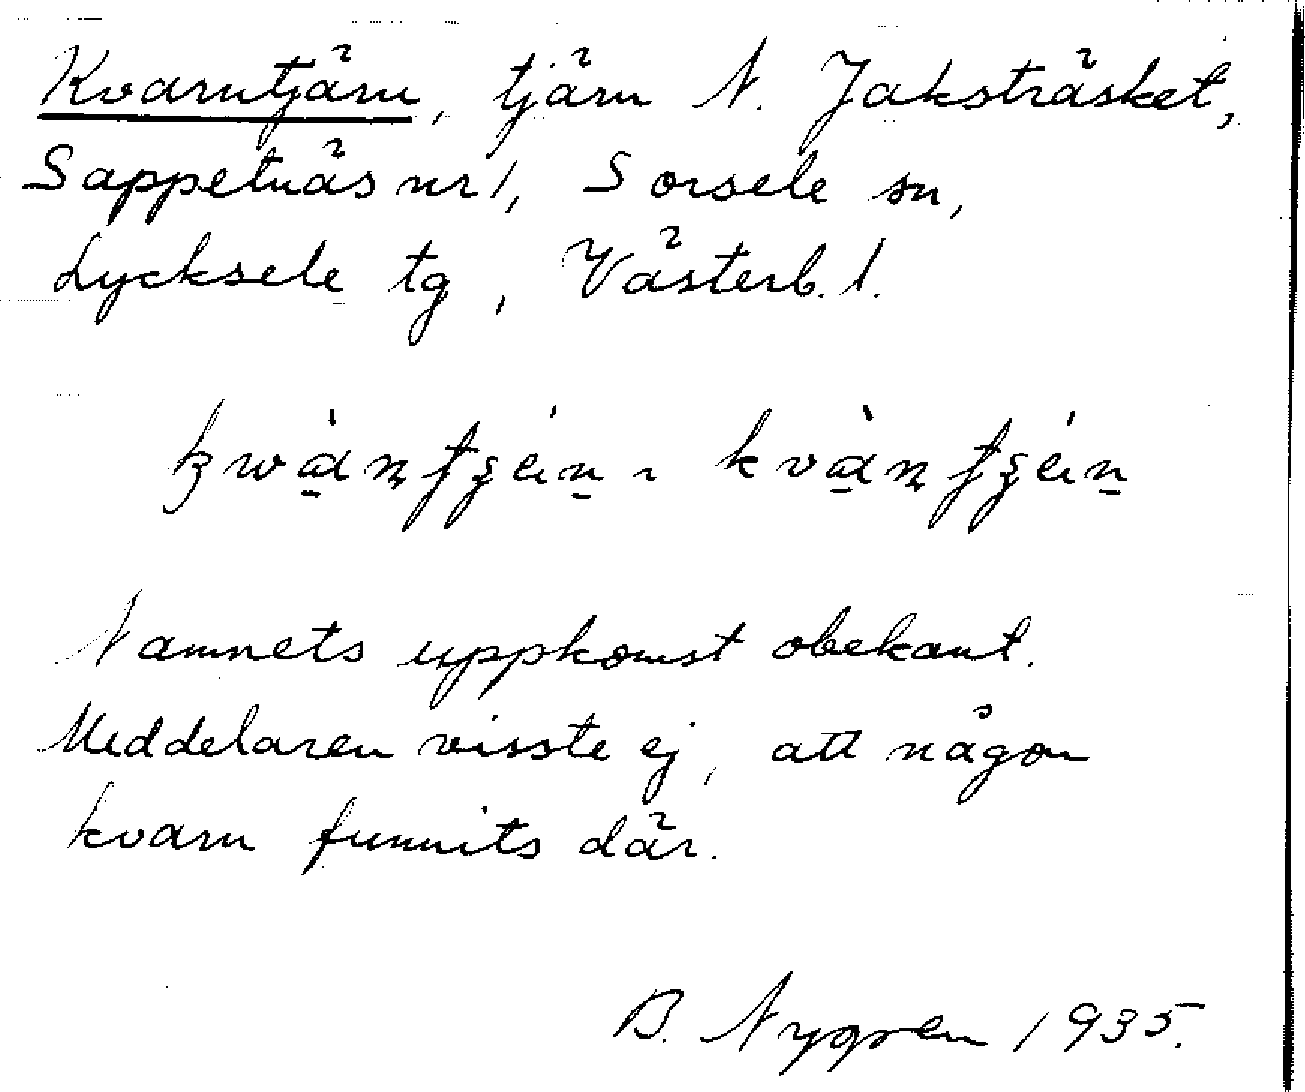 Kvarntjärn, tjärn N. Jaksträsket,
Sappetnäs nr 1, Sorsele sn,
Lycksele tg, Västerb. l.
Namnets uppkomst obekant.
Meddelaren visste ej, att någon
kvarn funnits där.
B. Nygren 1935.